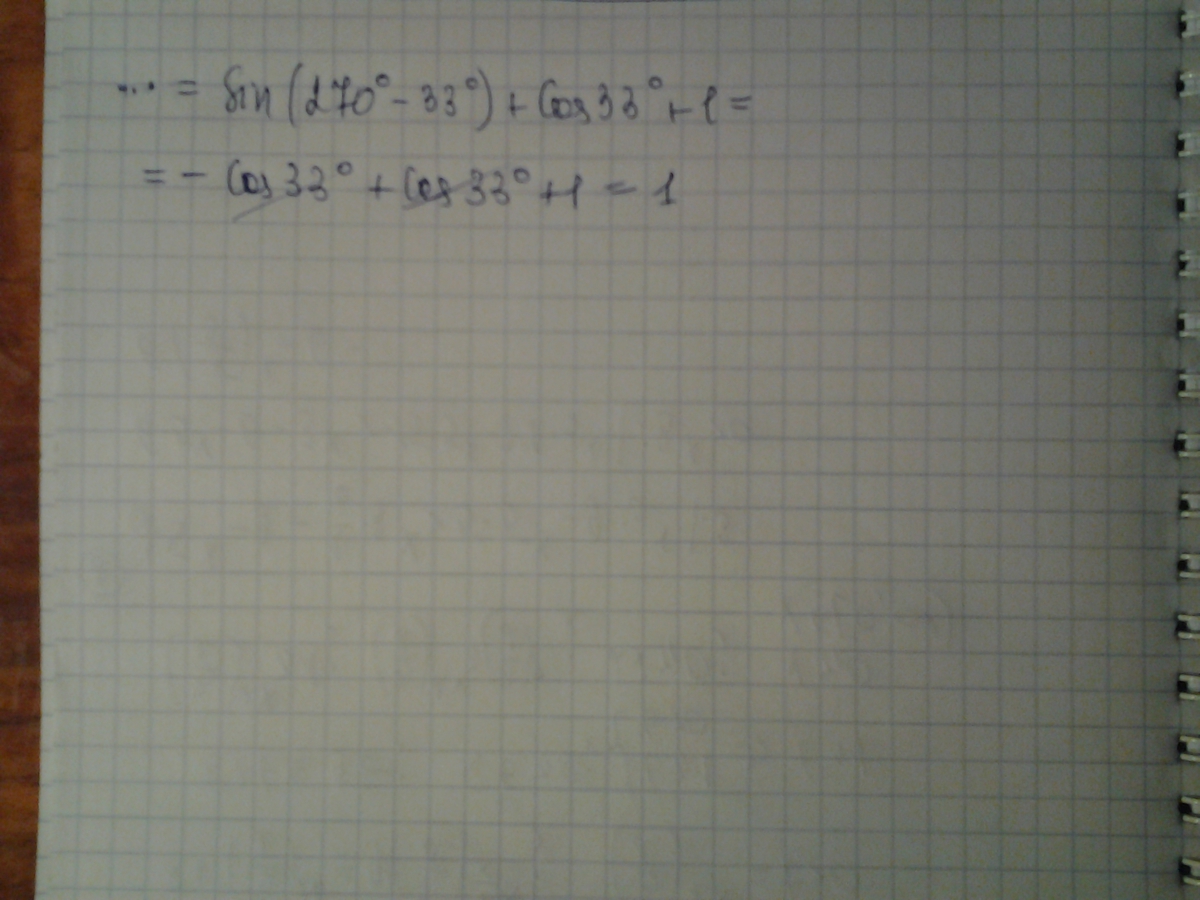 ... = Sin (270° - 33°) + Cos 33° + 1 =
= - Cos 33° + Cos 33° + 1 = 1